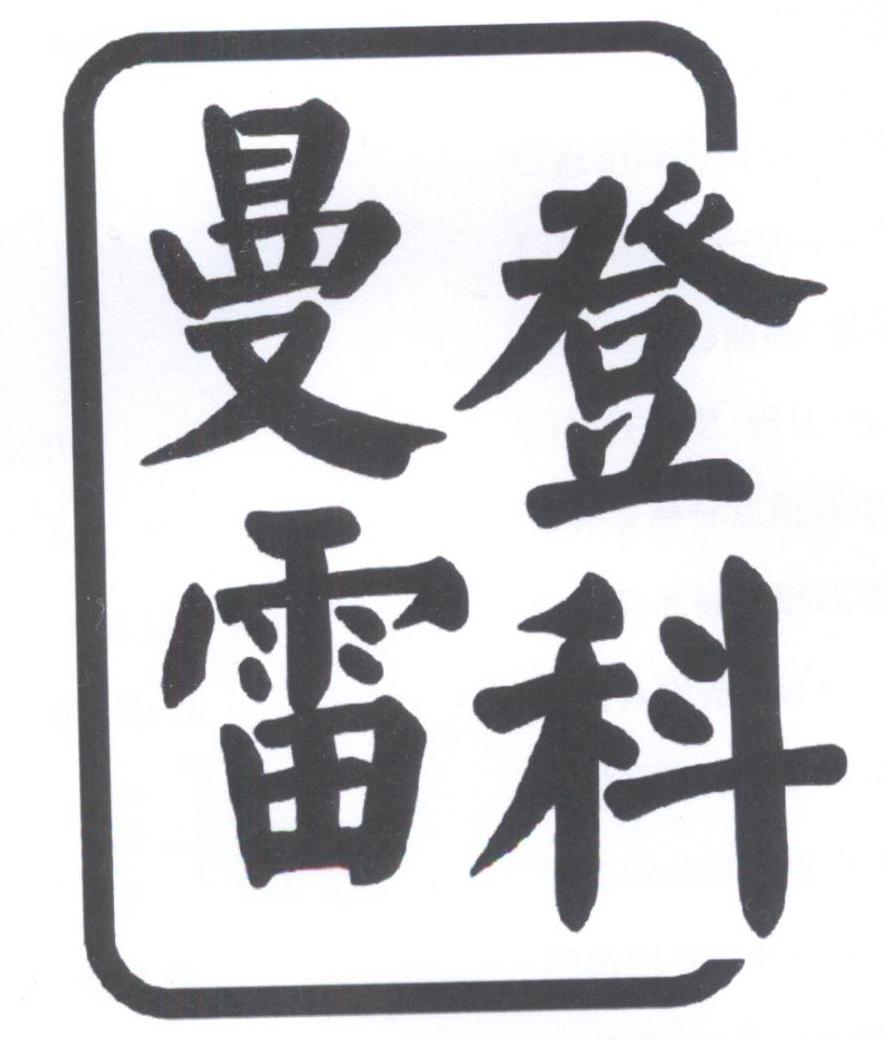 登科
曼雷